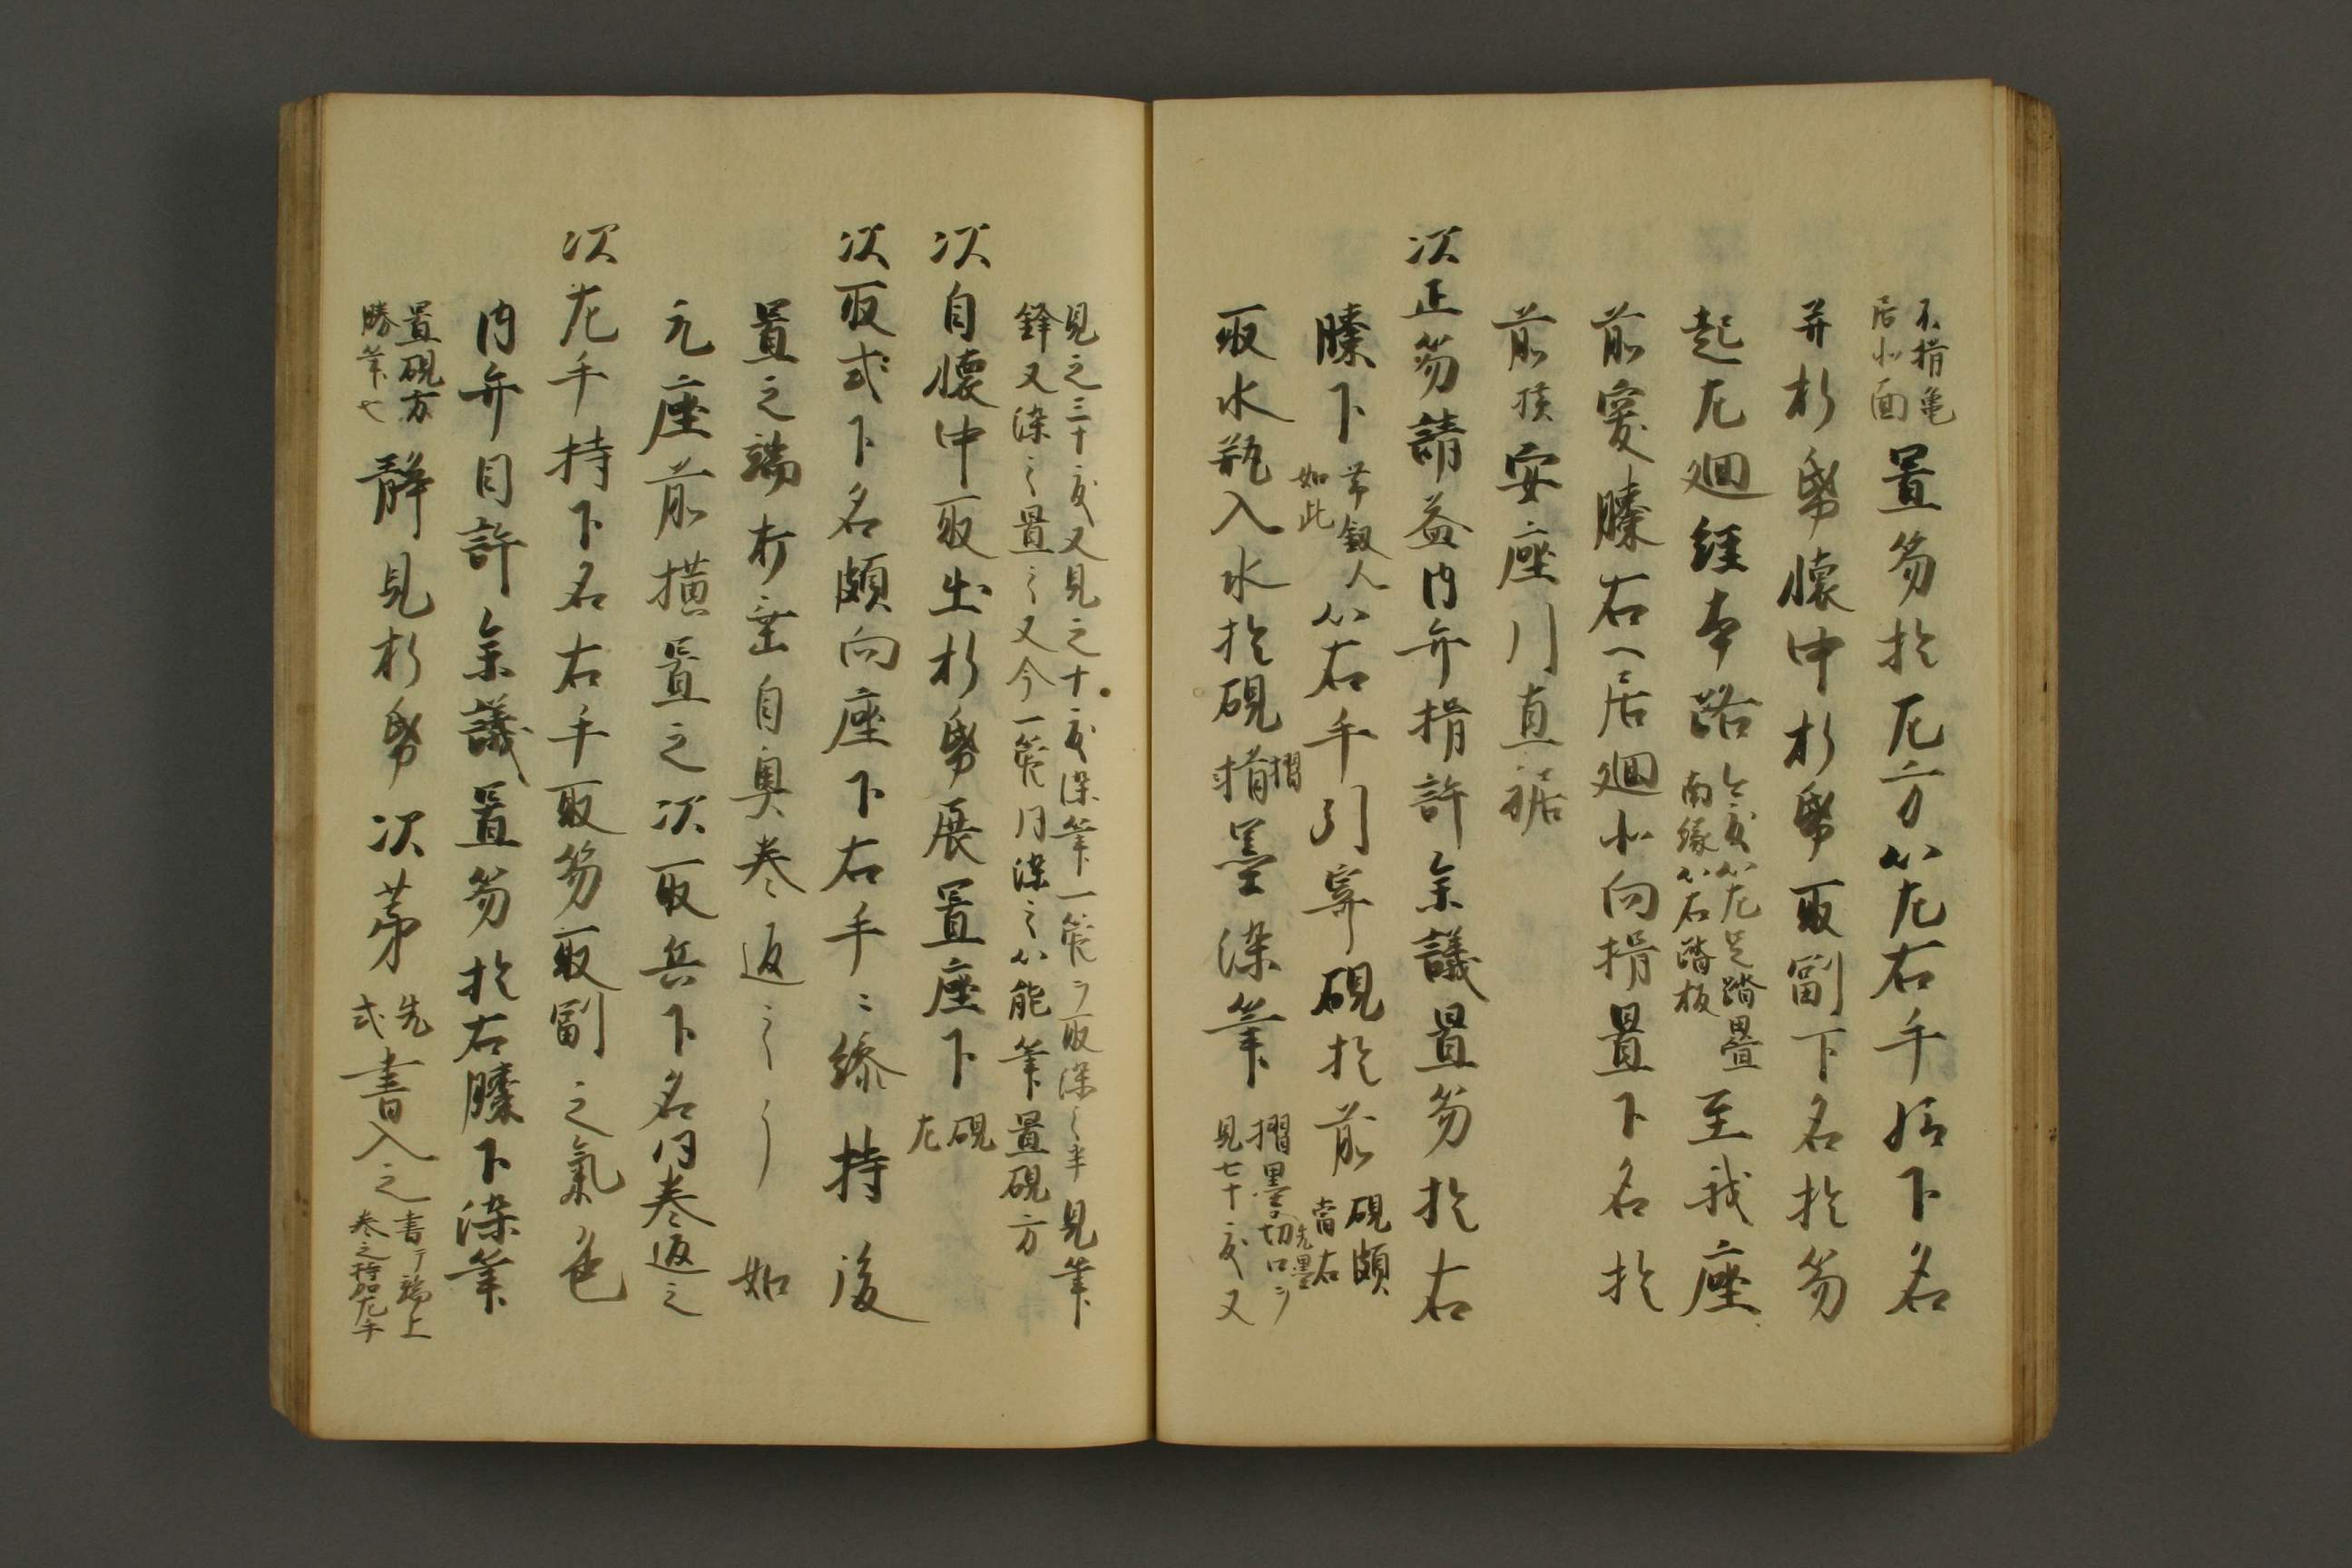 不揖亀
居北面
置笏於左方以左右手給下名
并折帋懐中折帋取副下名於笏
起左廻経本路
今度以左足踏畳
南縁以右踏板
至我座
前突膝右へ居廻北向揖置下名於
前横安座引直裾
次正笏請益内弁揖許余議置笏於右
膝下
帯釼人
如此
以右手引寄硯於前
硯頗
当右
取水瓶入水於硯
摺
墨染筆
摺墨切口ヲ
先墨
見七十度又
見之三十度又見之十度染筆一管ヲ取染之半見筆
鋒又染之置之又今一管同染之以能筆置硯方
次自懐中取出折帋展置座下
硯
左
次取式下名頗向座下右手ニ絛持後
置之端折重自奥巻返之了如
元座前横置之次取兵下名同巻返之
次左手持下名右手取笏取副之氣色
内弁目許余議置笏於右膝下染筆
置硯方
勝筆也
静見折帋次第
先
式
書入之
書了端上
巻之持加左手